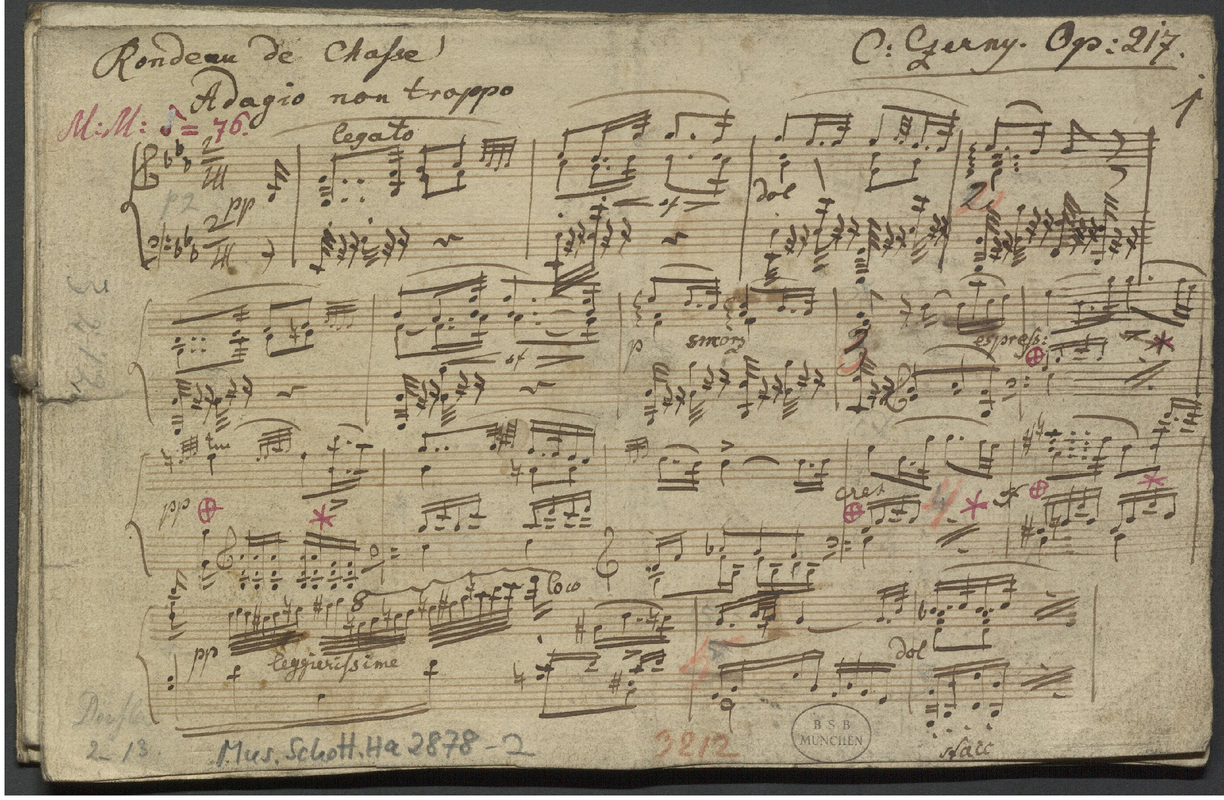 Rondeau de Chasse
C: Czerny. Op: 217.
Adagio non troppo
1
M:M: ♪= 76.
legato
pp
dol
sf
2
p
smorz
espress:
sf
3
pp
cres
4
8
loco
pp
leggierissime
dol
5
stacc
2-13.
Mus. Schott. Ha 2878-2
3212
BSB
MÜNCHEN